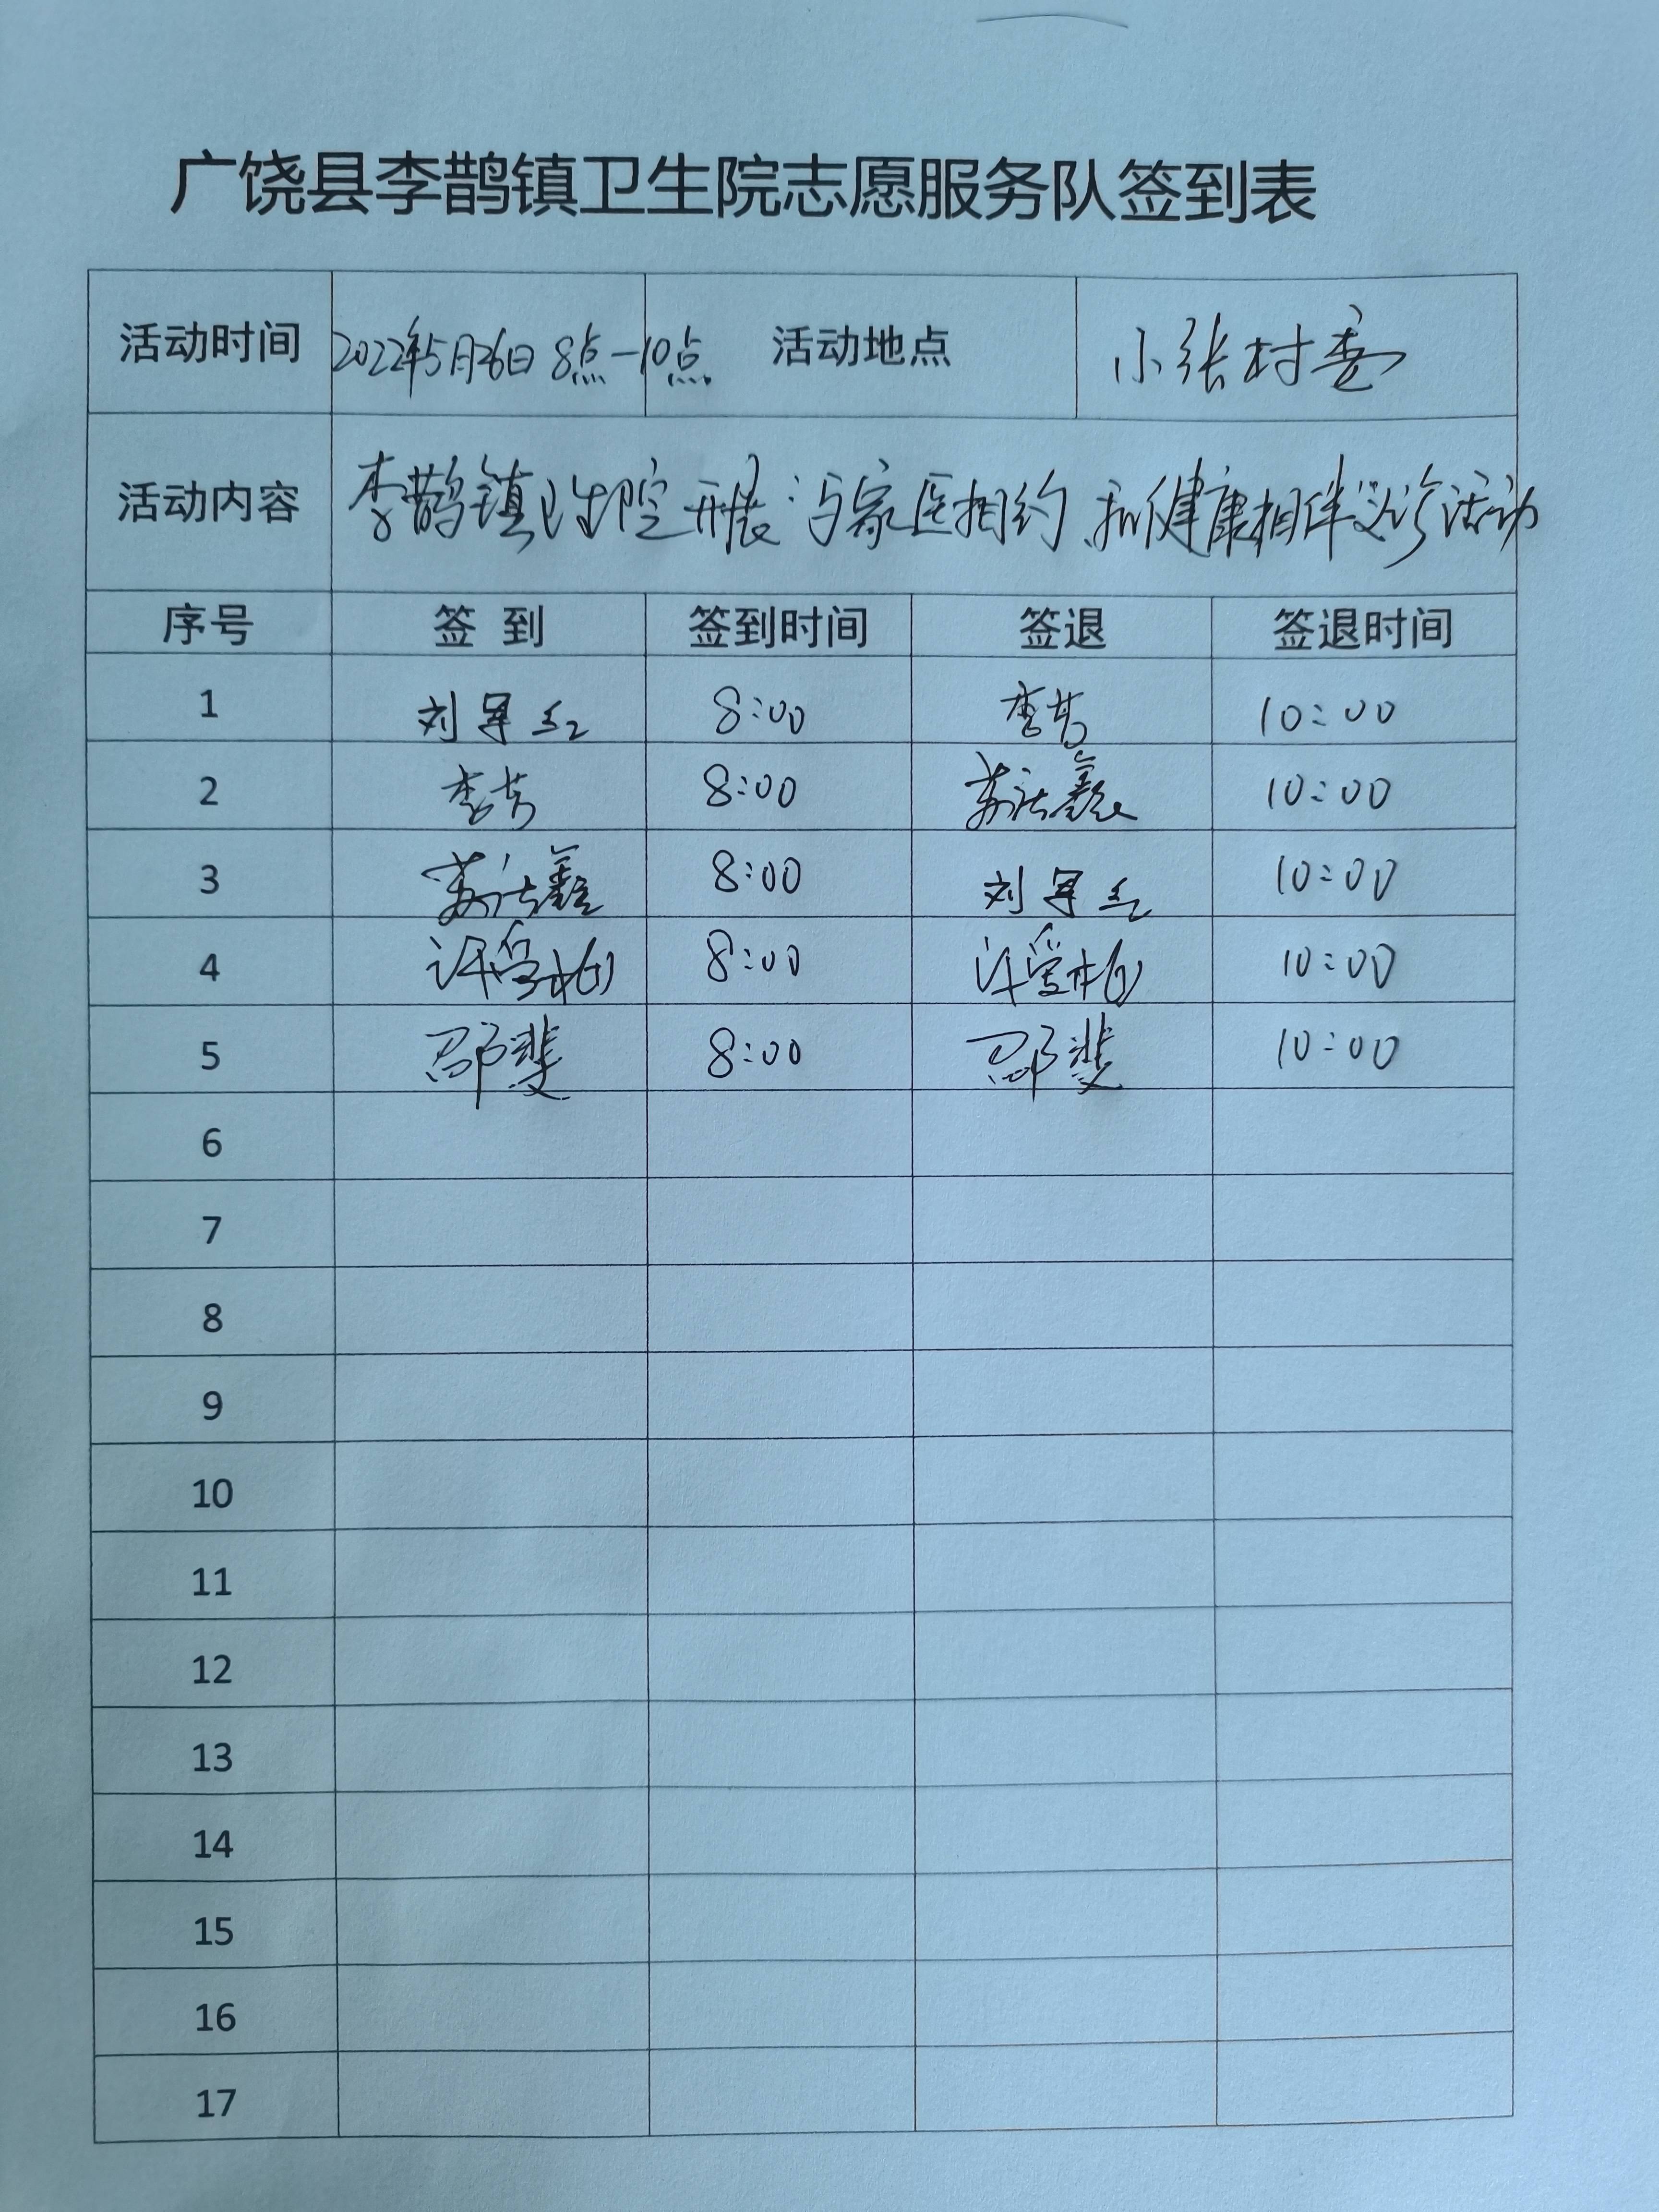 广饶县李鹊镇卫生院志愿服务队签到表
活动时间 2022年5月26日 8点-10点 活动地点 小张村委
活动内容 李鹊镇卫生院开展:与家医相约、和健康相伴义诊活动
序号 签 到 签到时间 签退 签退时间
1 刘军红 8:00 李芳 10:00
2 李芳 8:00 10:00
3 8:00 刘军红 10:00
4 8:00 10:00
5 邵斐 8:00 邵斐 10:00
6
7
8
9
10
11
12
13
14
15
16
17